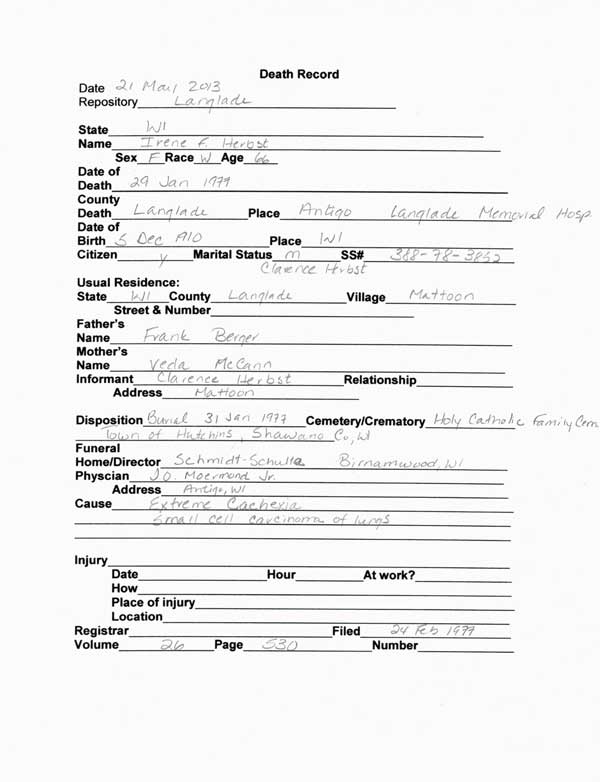 Death Record
Date 21 May 2013
Repository Langlade
State WI
Name Irene F. Herbst
Sex F Race W Age 66
Date of
Death 29 Jan 1977
County
Death Langlade Place Antigo Langlade Memorial Hosp.
Date of
Birth 5 Dec 1910 Place WI
Citizen y Marital Status m SS# 388-78-3852
Clarence Herbst
Usual Residence:
State WI County Langlade Village Mattoon
Street & Number
Father's
Name Frank Berger
Mother's
Name Veda McCann
Informant Clarence Herbst Relationship
Address Mattoon
Disposition Burial 31 Jan 1977 Cemetery/Crematory Holy Catholic Family Cem
Town of Hutchins, Shawano Co, WI
Funeral
Home/Director Schmidt-Schulta Birnamwood, WI
Physcian J.O. Moermond Jr.
Address Antigo, WI
Cause Extreme Cachexia
Small cell carcinoma of lungs
Injury
Date Hour At work?
How
Place of injury
Location
Registrar Filed 24 Feb 1977
Volume 26 Page 530 Number